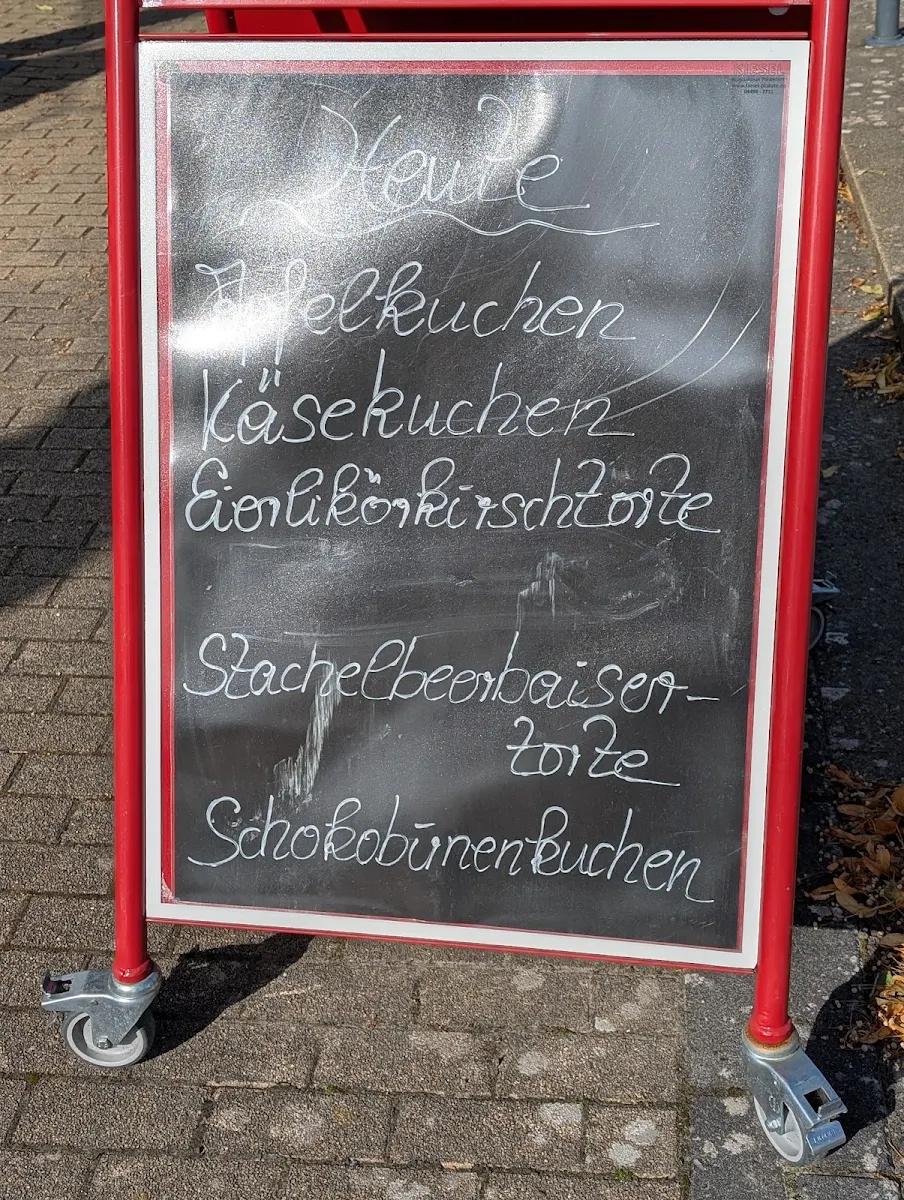 Heute
Apfelkuchen
Käsekuchen
Eierlikörkirschtorte
Stachelbeerbaiser-
torte
Schokobirnenkuchen